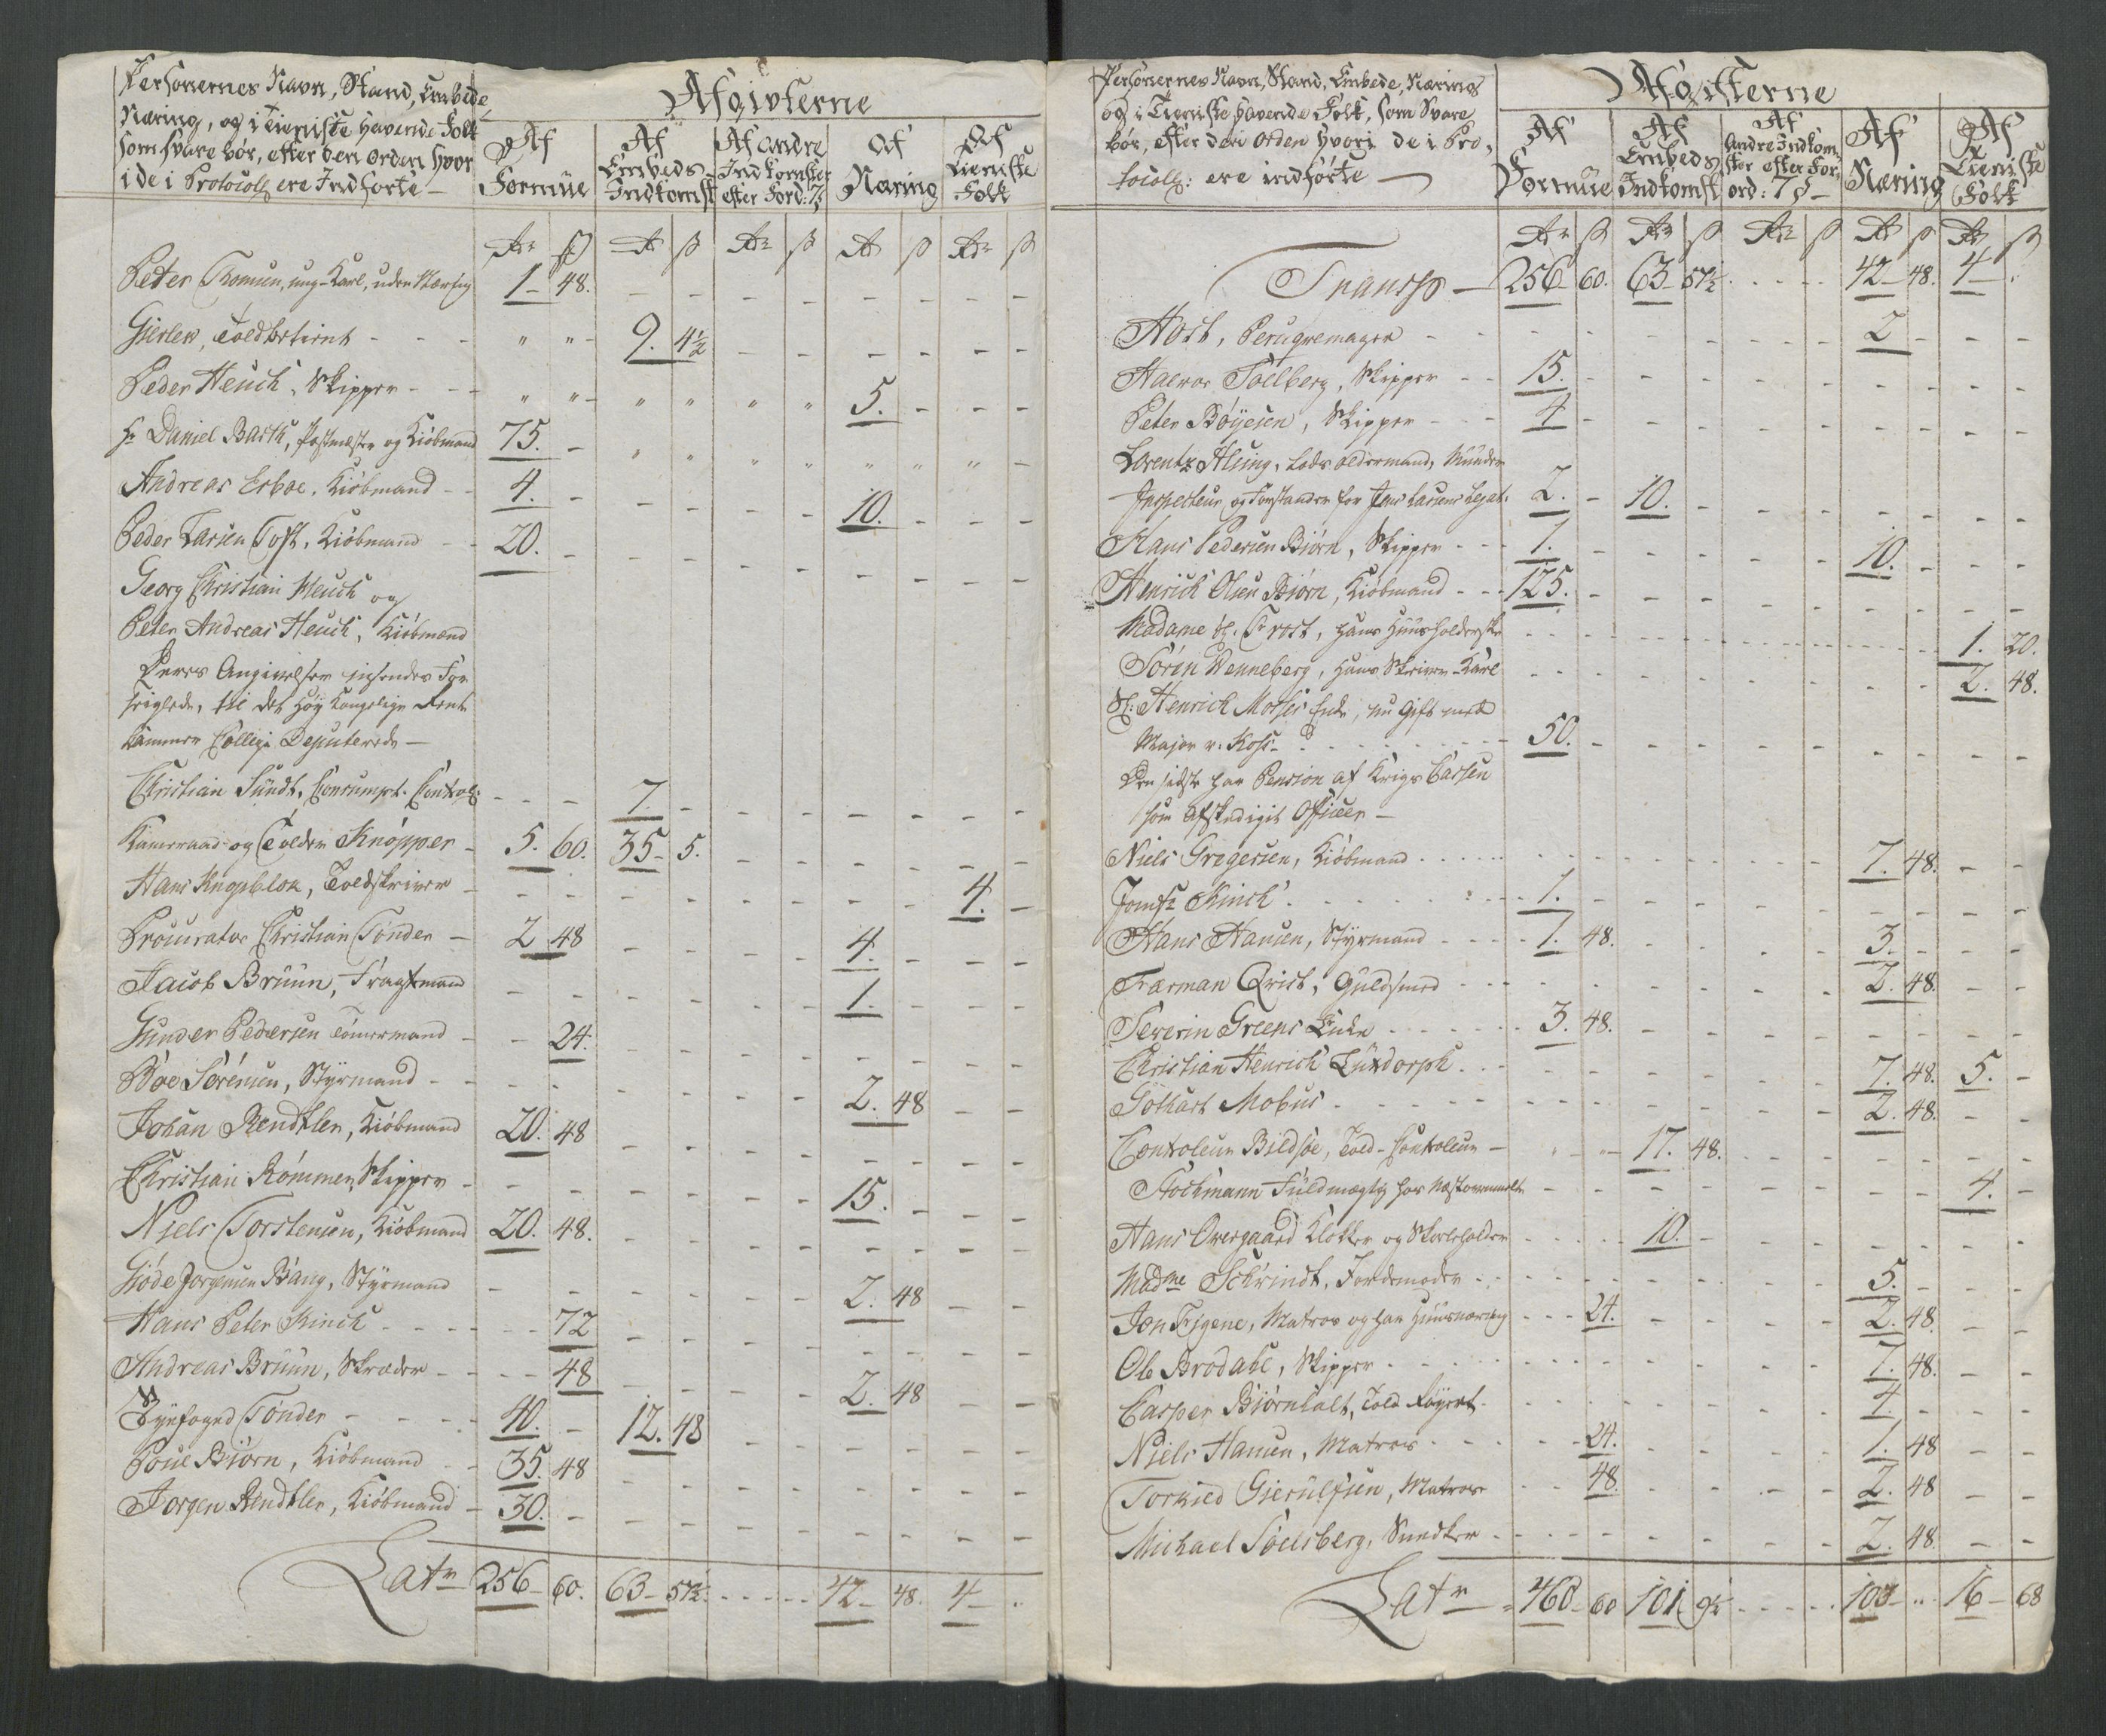 Personernes Navn, Stand, Embede,
Næring, og i Tieniste havende Folk
som svare bør, efter den Orden hvor
i de i Protocoll: ere Indførte —
Afgivterne
Af Formue
Af Embeds Indkomst
Af andre Indkomster efter Ford: 7 §
Af Næring
Af Tieniste Folk
Peter Thomsen, ung-Karl, uden Næring 1 - 48.
Toldbetient - - - " " 9. 4½
Peder Heuch, Skipper - - - " " " " " " 5. - - -
Hr Daniel Barth, Postmester og Kiöbmand 75. -
Andreas Esboe, Kiöbmand - - 4. - - - - - 10. - - -
Peder Larsen Toft, Kiöbmand - - 20. -
Georg Christian Heuch og
Peter Andreas Heuch, Kiöbmænd
Deres Angivelser insendes For
seiglede, til det Høy Kongelige Rente
Kammer Collegii Deputerede —
Christian Sundt, Consumpt. Control: - - - 7. -
Kammerraad og Tolder Knopper - 5. 60. 35 - 5.
Hans Toldskriver - - - - - - - - - 4. -
Procurator Christian Tønder - 2 48 - - - - 4. - - -
Jacob Bruun, Fragtmand - - - - - - 1. - - -
Gunder Pedersen Tömmermand - - 24.
Boe Sörensen, Styrmand - - - - - - - - 2. 48 - -
Johan Rendtler, Kiöbmand 20. 48
Christian Römmer, Skipper - - - - - - - 15. - - -
Niels Torstensen, Kiöbmand 20. 48.
Giöde Jorgensen Bang, Styrmand - - - - - - 2. 48 - -
Hans Peter Kinck - - - - - 72
Andreas Bruun, Skræder - - - - 48 - - - - 2. 48 - -
Byefoged Tönder - - - - 40. - 12. 48
Poul Biörn, Kiöbmand - - 35. 48
Jorgen Rendtler, Kiöbmand - 30. -
Latr 256 - 60. 63 - 57½ - - - - 42 - 48. 4 - .
Personernes Navn, Stand, Embede, Næring
og i Tieniste havende Folk, som Svare
bør, efter den Orden hvori de i Pro,
tocoll: ere indførte —
Afgifterne
Af Formue
Af Embeds Indkomst
Af Andre Indkomster efter Ford: 7 §
Af Næring
Af Tieniste Folk
Transp — 256 60. 63 - 57½ - - - - 42 - 48. 4 - .
Host, Peruqvemager - - - - - - - - 2 - - -
Halvor Sollberg, Skipper - - 15. -
Peter Böyesen, Skipper - - - 4 -
Lorentz Alsing, Lods Oldermand, Mynder
Inspecteur, og Forstander for Jens Lassens Legat. 2. - 10. -
Hans Pedersen Biörn, Skipper - - - 1. - - - - - 10. - - -
Henrich Olsen Biörn, Kiöbmand - - 125. -
Madame Sl. Frost, hans Huusholderske - - - - - - - - 1. 20.
Sören Wenneberg, hans Skriver-Karl - - - - - - - - 2. 48.
Sl: Henrich Moses Enke, nu Gift med
Major v: Koss - - - - - - 50. -
Den sidste har Pension af Krigs Cassen
som afskediget Officeer —
Niels Gregersen, Kiöbmand - - - - - - - - - 7. 48. - -
Jomfr Kinck - - - - - - 1. -
Hans Hansen, Styrmand - - - - 1. 48. - - - - 3. - - -
Farman Qvist, Guldsmed - - - - - - - - - 2. 48. - -
Severin Greens Enke - - - - - - 3. 48.
Christian Henrich Luxdorph - - - - - - - - 7. 48. 5. -
Gothart Mobus - - - - - - - - - - 2. 48. - -
Controleur Bildsöe, Told-Controleur — 17. 48.
Stockmann Fuldmægtig hos Næstommeldte - - - - - - - - 4. -
Hans Overgaard Klokker og Skoleholder - - - - 10. -
Madme Schrindt, Jordemoder - - - - - - - - 5. - - -
Jon Matros og har Huusnæring - - - 24. - - - - 2. 48. - -
Ole Brodahl, Skipper - - - - - - - - - 7. 48. - -
Casper Biörnholt, Told - - - - - - - - 4. - - -
Niels Hansen, Matros - - - - - 24. - - - - 1. 48 - -
Torkild Gierulfsen, Matros - - 48. - - - - 2. 48 - -
Michael Söelsberg, Snedker - - - - - - - - 2. 48. - -
Latr - 460 - 60 101 9½ - - - - 103 - .. 16 - 68